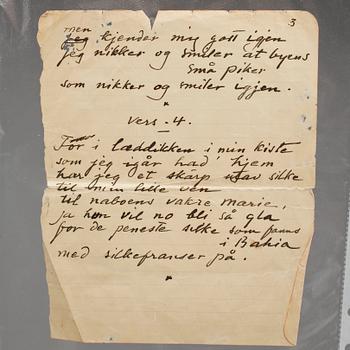 3
men
jeg kjender mig godt igjen
jeg nikker og smiler åt byens
små piker
som nikker og smiler igjen.
vers - 4.
For i læddikken i min kiste
som jeg igår had' hjem
har jeg et skärp utav silke
til min lille ven
til naboens vakre marie,
ja hon vil no bli så gla
for de peneste silke som fanns
i Bahia
med silkefranser på.